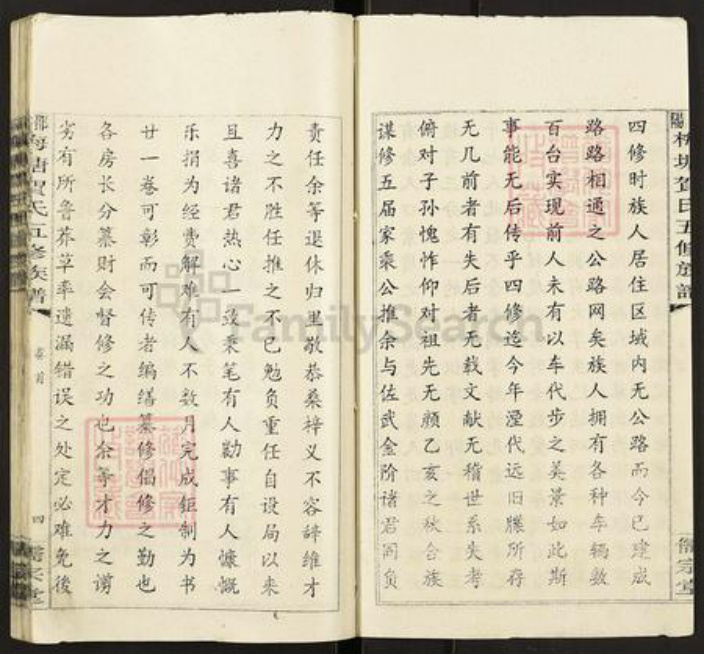 四修时族人居住区域内无公路而今已建成
路路相通之公路网矣族人拥有各种车辆数
百台实现前人未有以车代步之美景如此斯
事能无后传乎四修迄今年湮代远旧牒所存
无几前者有失后者无载文献无稽世系失考
俯对子孙愧怍仰对祖先无颜乙亥之秋合族
谋修五届家乘公推余与佐武金阶诸君同负
责任余等退休归里敬恭桑梓义不容辞维才
力之不胜任推之不已勉负重任自设局以来
且喜诸君热心一致秉笔有人勷事有人慷慨
乐捐为经费解难有人不数月完成钜制为书
廿一卷可彰而可传者编缮纂修倡修之勤也
各房长分纂财会督修之功也余等才力之谫
劣有所鲁莽草率遗漏错误之处定必难免後
贺氏五修族谱
卷首
四
FamilySearch